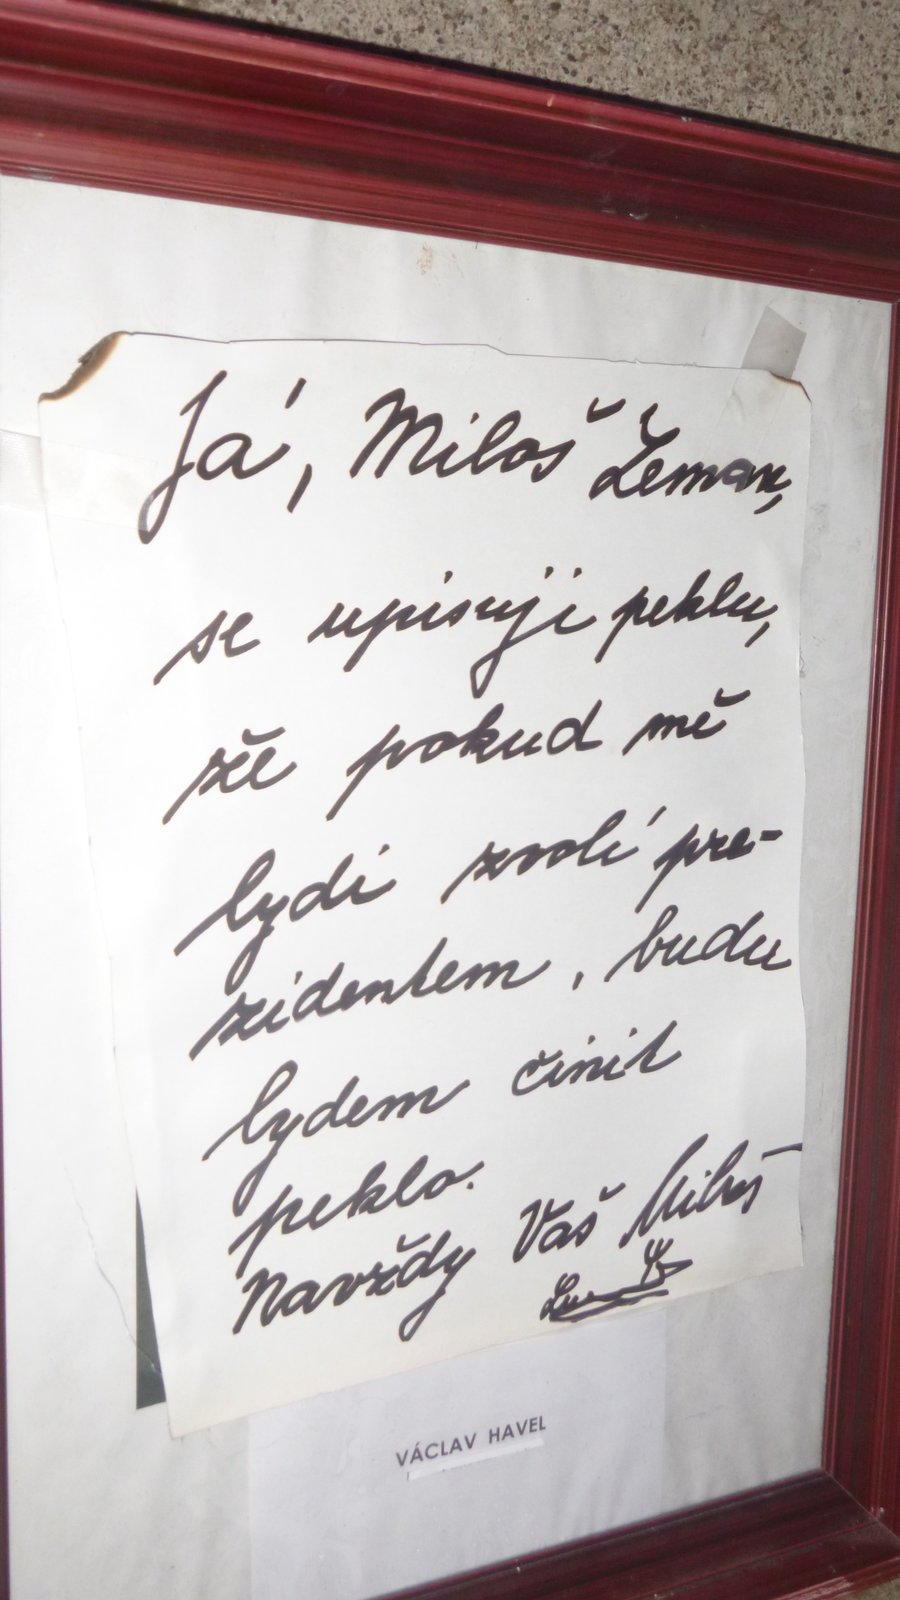 Já, Miloš Zeman,
se upisuji peklu,
že pokud mě
lydi zvolí pre-
zidentem, budu
lydem činit
peklo.
Navždy Váš Miloš
VÁCLAV HAVEL